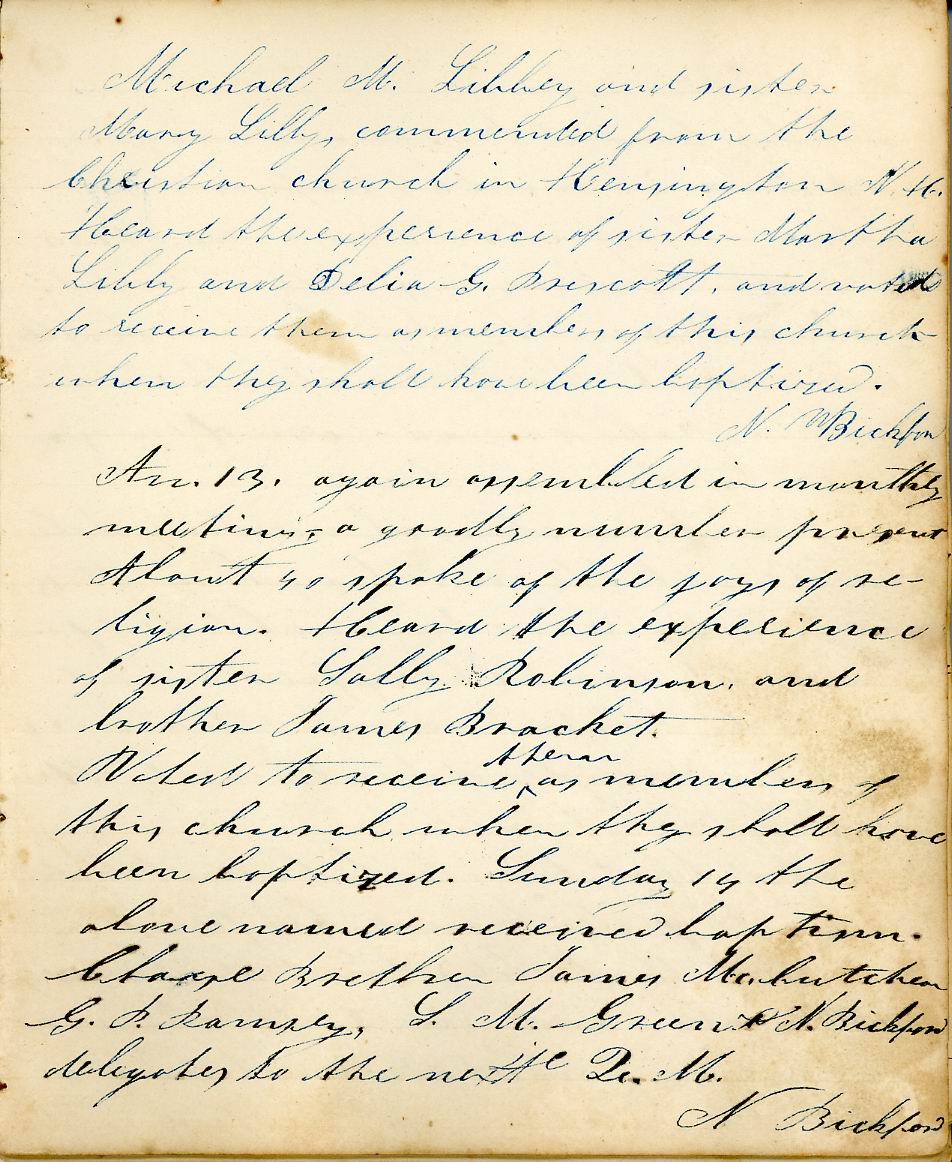 Michael M. Libbey and sister
Mary Libby, commended from the
Christian church in Kensington N. H.
Heard the experience of sister Martha
Libby and Delia G. Prescott, and voted
to receive them as members of this church
when they shall have been baptized.
N. Bickfor
13. again assembled in monthly
meeting, a goodly number present
About 40 spoke of the joys of re-
ligion. Heard the experience
of sister Sally Robinson, and
brother James Bracket.
Voted to receive them as members of
this church when they shall have
been baptized. Sunday 14 the
above named received baptism.
Chose Brethren James Mc.Cutchen
G. P. Ramsey, L. M. Green & N. Bickford
delegates to the next Q. M.
N Bickford